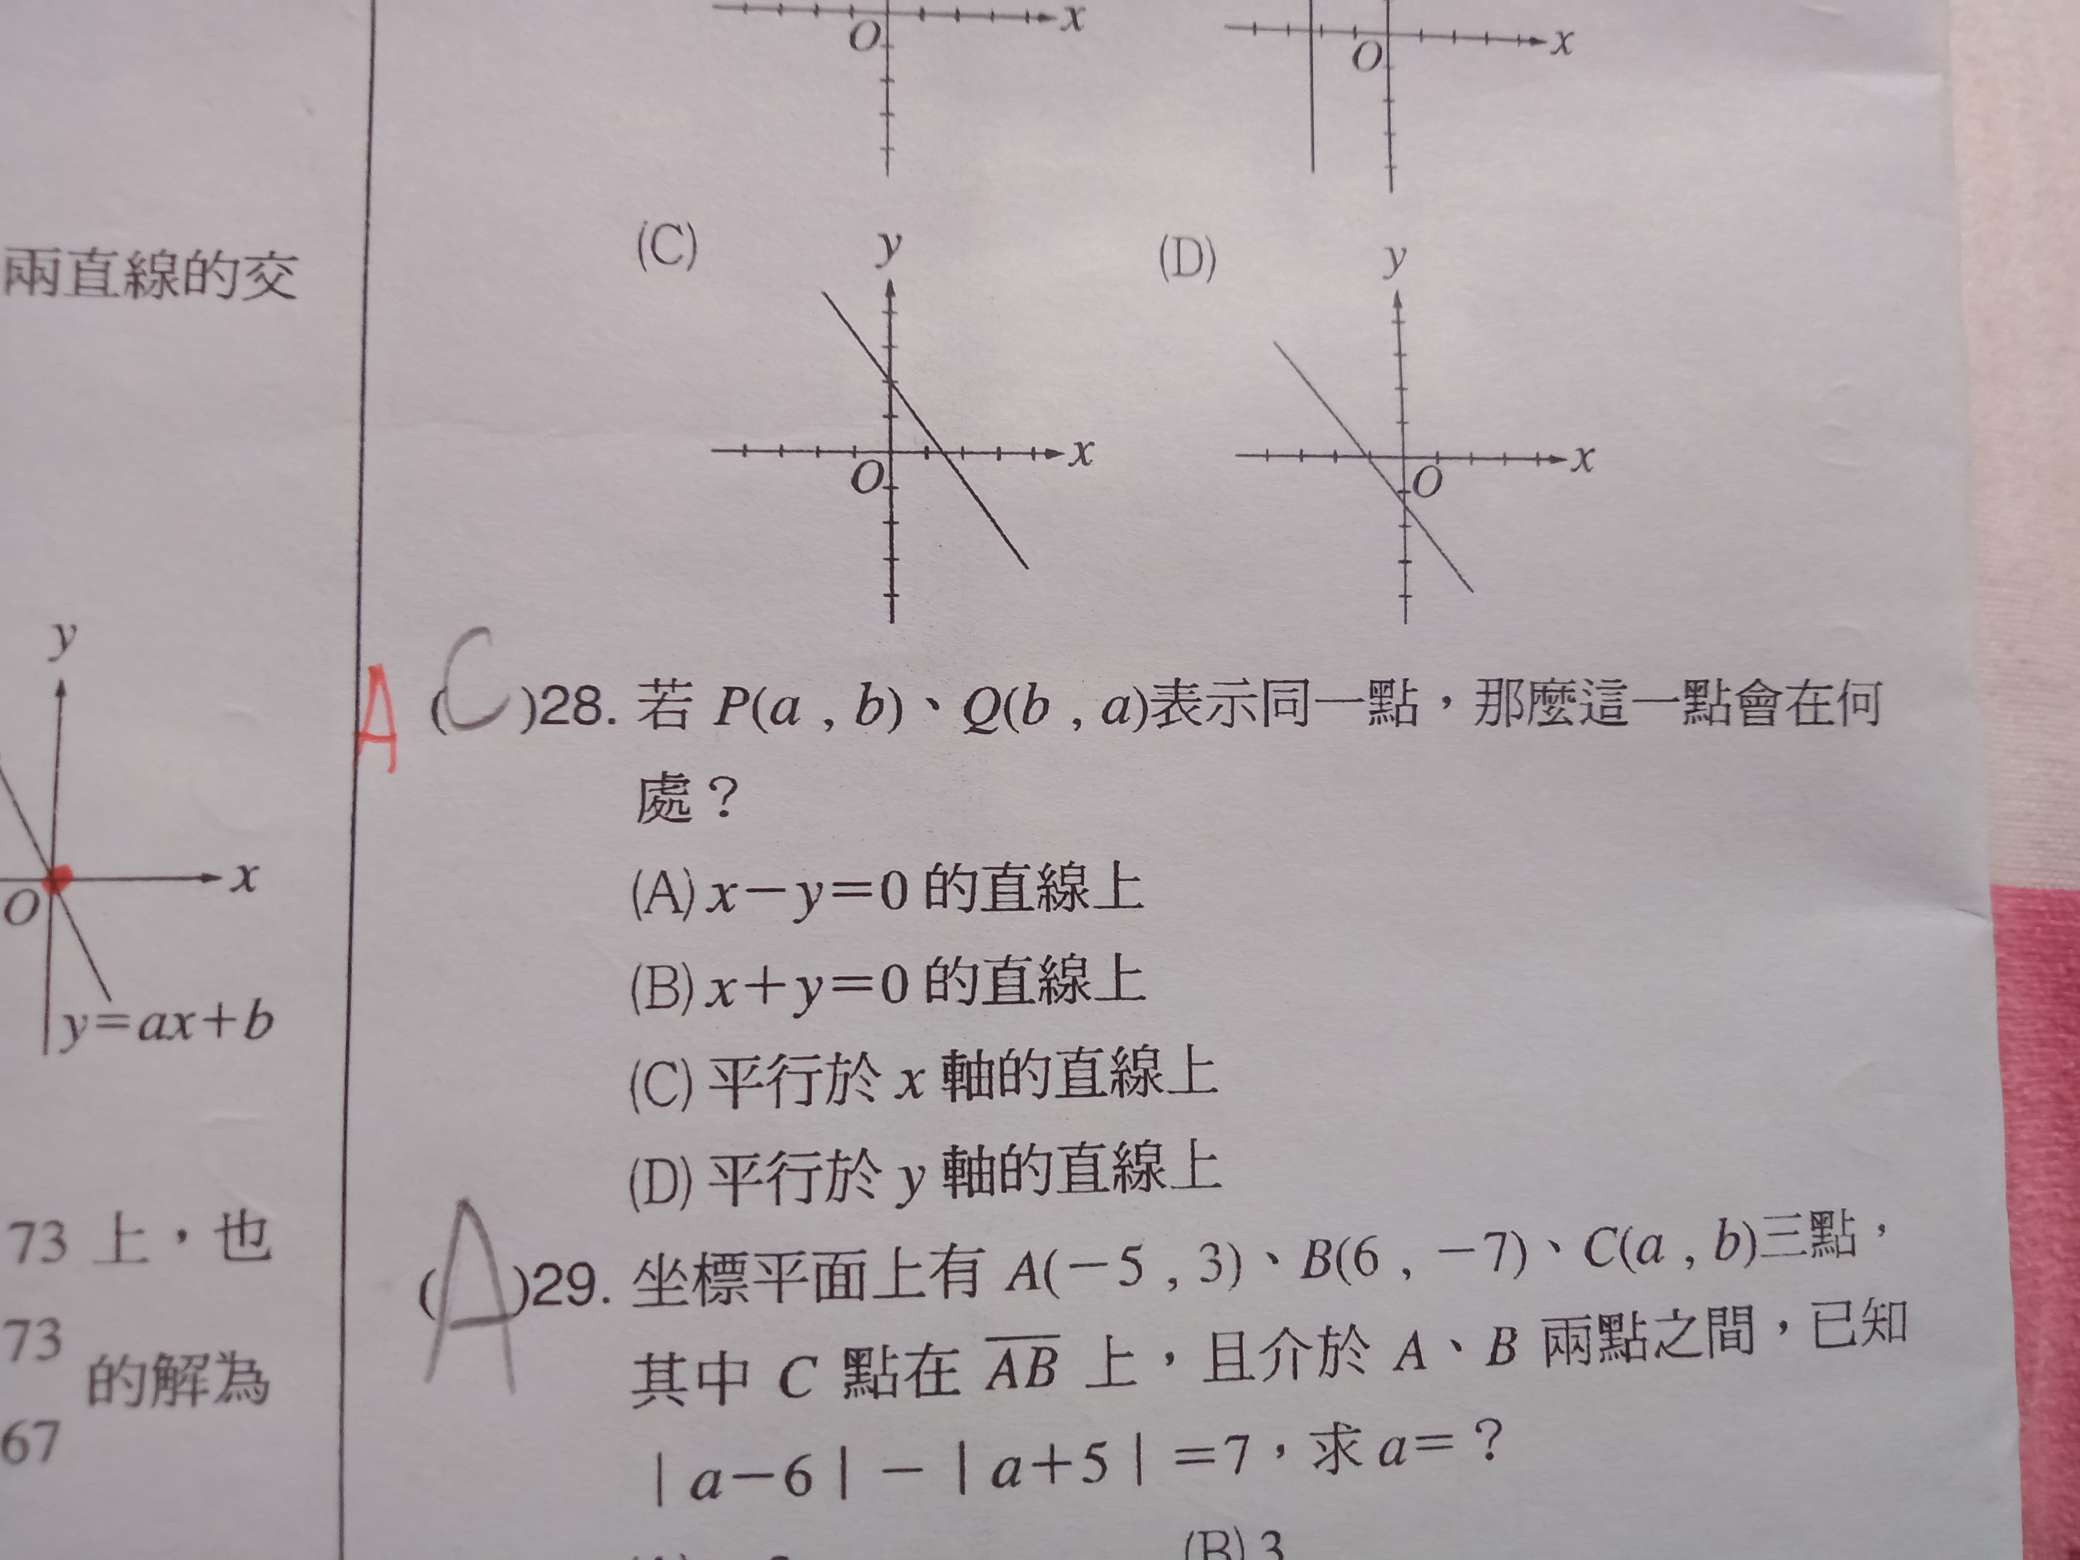 O
x
O
x
(C)
y
O
x
(D)
y
O
x
A
(C)28. 若 P(a , b)、Q(b , a)表示同一點，那麼這一點會在何
處？
(A) x－y＝0 的直線上
(B) x＋y＝0 的直線上
(C) 平行於 x 軸的直線上
(D) 平行於 y 軸的直線上
(A)29. 坐標平面上有 A(－5 , 3)、B(6 , －7)、C(a , b)三點，
其中 C 點在 AB 上，且介於 A、B 兩點之間，已知
｜a－6｜－｜a＋5｜＝7，求 a＝？
(B) 3
兩直線的交
y
x
O
y＝ax＋b
73 上，也
73
的解為
67